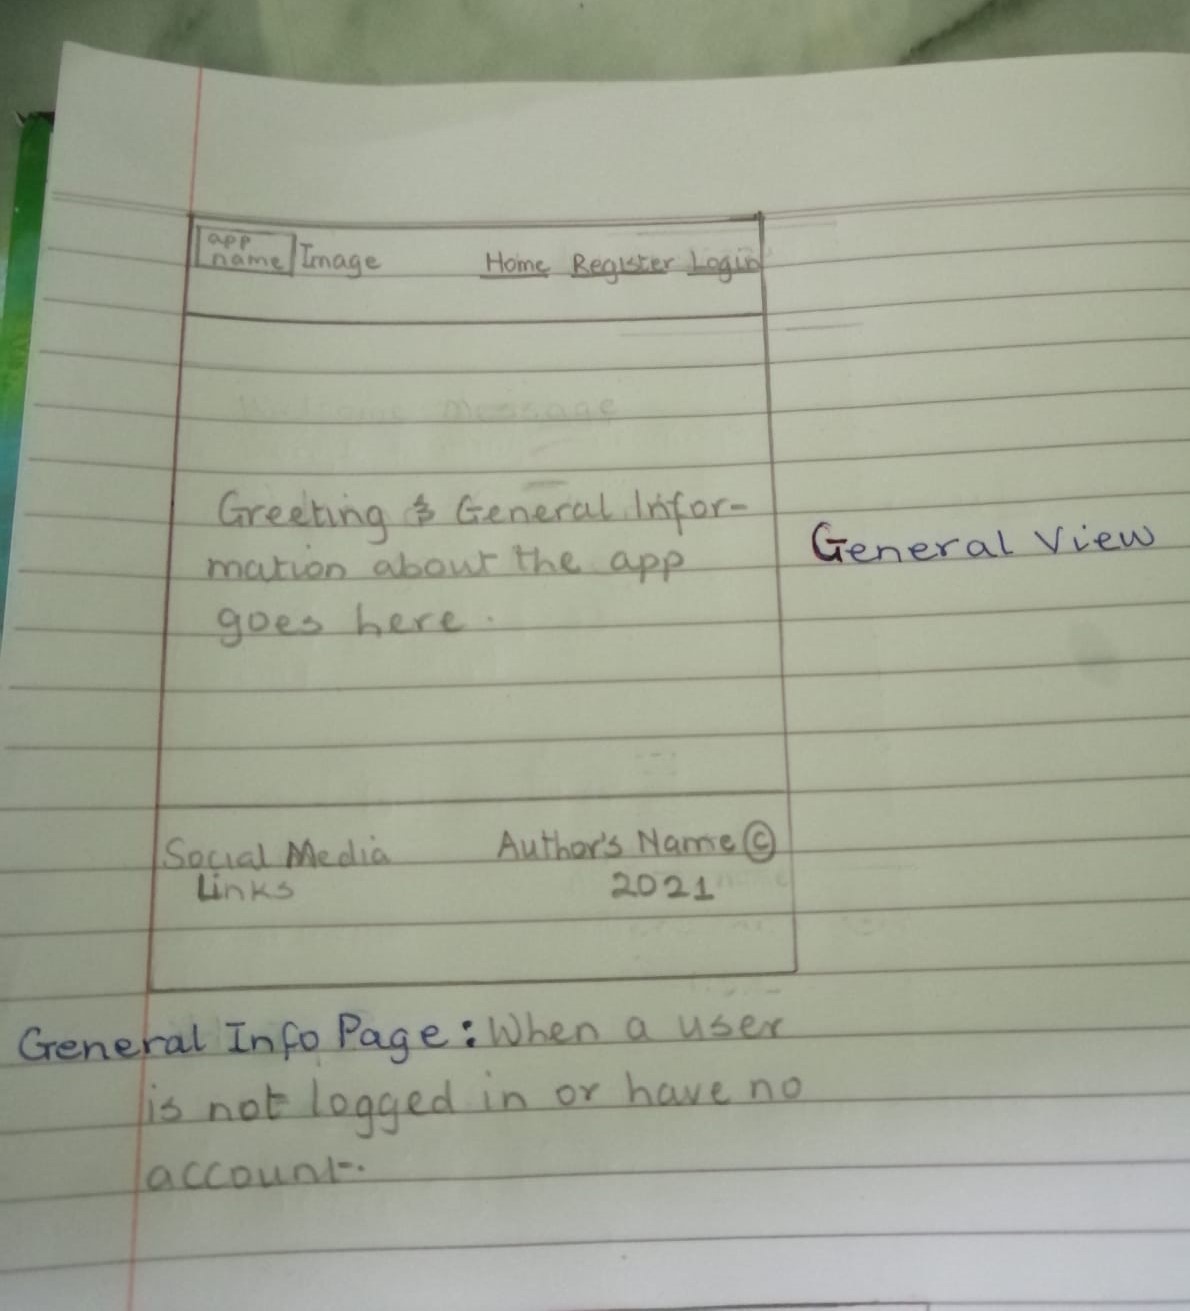 app
name Image Home Register Login
Message
Greeting & General Infor-
mation about the app
goes here.
General View
Social Media Author's Name ©
Links 2021
General Info Page: When a user
is not logged in or have no
account.